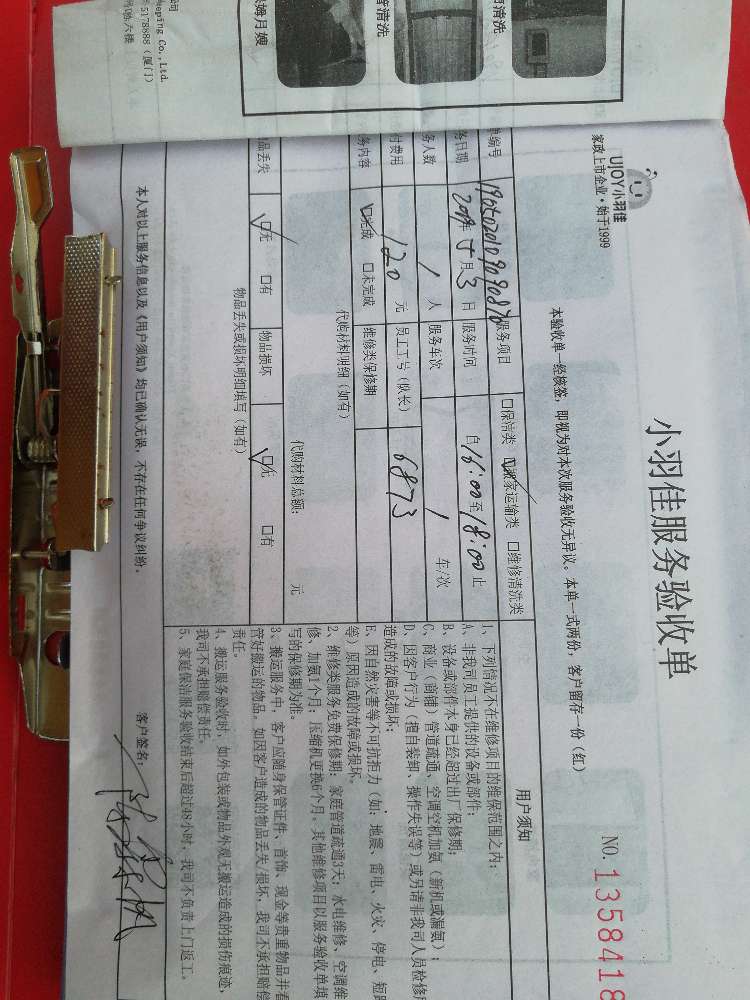 清洗
管清洗
月嫂
公司
eeping Co.,Ltd.
5178888（厦门）
六楼
UJOY小羽佳
家政上市企业·始于1999
小羽佳服务验收单
本验收单一经核签，即视为对本次服务验收无异议。本单一式两份，客户留存一份（红）
NO.1358418
单编号
服务项目 口保洁类 口搬家运输类 口维修清洗类
务日期 2019年5月3日 服务时间 自16:00至18:00止
务人数 1 人 服务车次 1 车/次
付费用 120 元 员工工号（队长） 6873
务内容 口完成 口未完成 维修类保修期
代购材料明细（如有）
代购材料总额： 元
品丢失 口无 口有 物品损坏 口无 口有
物品丢失或损坏明细填写（如有）
用户须知
1、下列情况不在维修项目的维保范围之内：
A、非我司员工提供的设备或部件；
B、设备或部件本身已经超过出厂保修期；
C、商业（商铺）管道疏通、空调空机加氨（新机或漏氨）；
D、因客户行为（擅自装卸、操作失误等）或另请非我司人员检修
造成的故障或损坏；
E、因自然灾害等不可抗拒力（如：地震、雷电、火灾、停电、短路
等）原因造成的故障或损坏。
2、维修类服务免费保修期：家庭管道疏通3天；水电维修、空调维
修、加氨1个月；压缩机更换6个月。其他维修项目以服务验收单填
写的保修期为准。
3、搬运服务中，客户应随身保管证件、首饰、现金等贵重物品并看
管好搬运的物品。如因客户造成的物品丢失/损坏，我司不承担赔偿
责任。
4、搬运服务验收时，如外包装或物品外观无搬运造成的损伤痕迹，
我司不承担赔偿责任。
5、家庭保洁服务验收结束后超过48小时，我司不负责上门返工。
本人对以上服务信息以及《用户须知》均已确认无误，不存在任何争议纠纷。
客户签名：